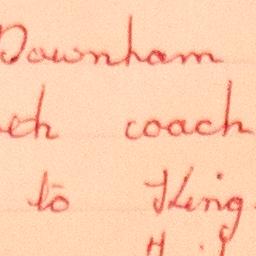 Downham
coach
to King